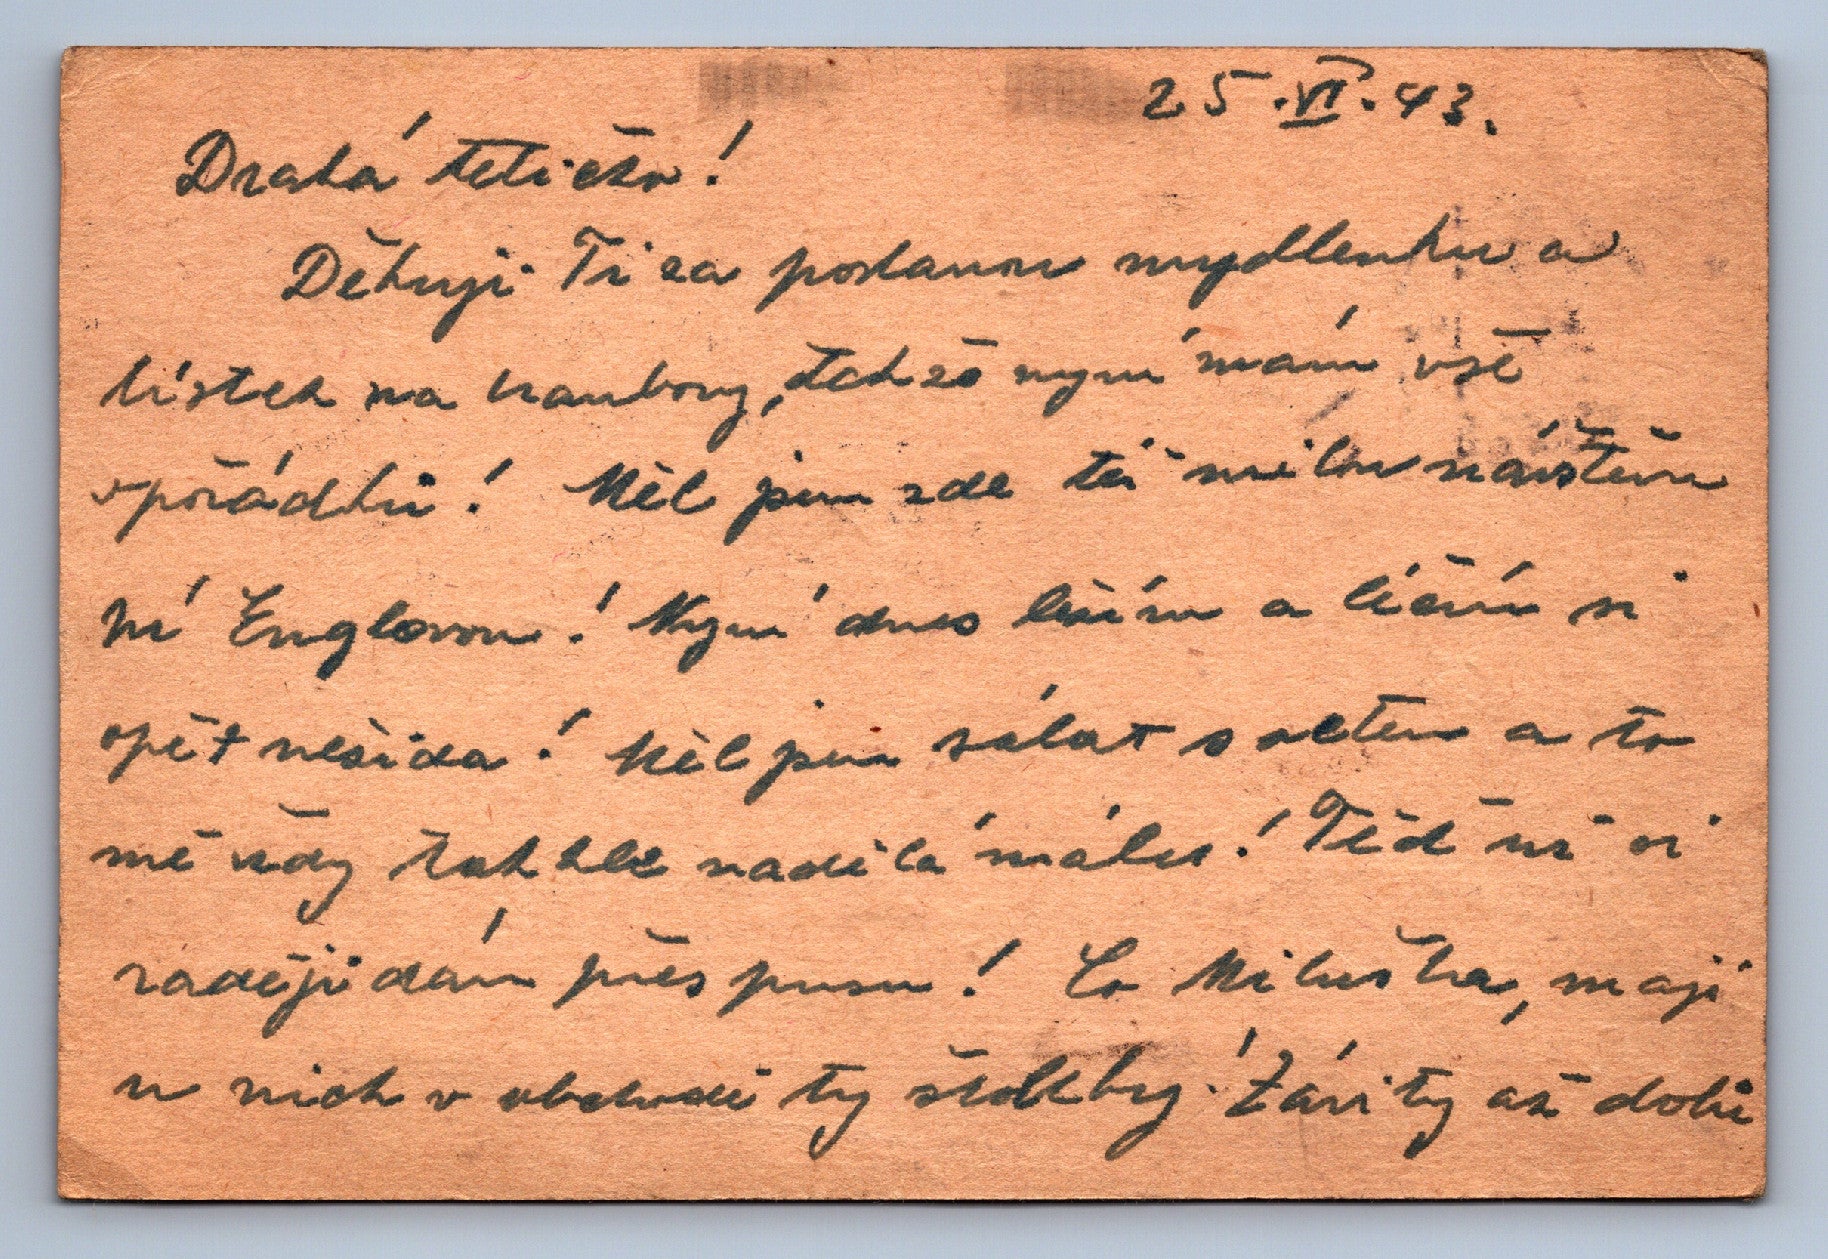 25.VI.43.
Drahá tetičko!
Děkuji Ti za poslanou mydlenku a
lístek na brambory, takže nyní mám vše
v pořádku! Měl jsem zde též milou návštěvu
Englovou! Nyní dnes ležím a léčím si
opět! Měl jsem salát s octem a to
mě vždy takhle nadělá! Teď už si
raději dám přes pusu! Co Miluška, mají
u nich v obchodě ty! Záři ty až